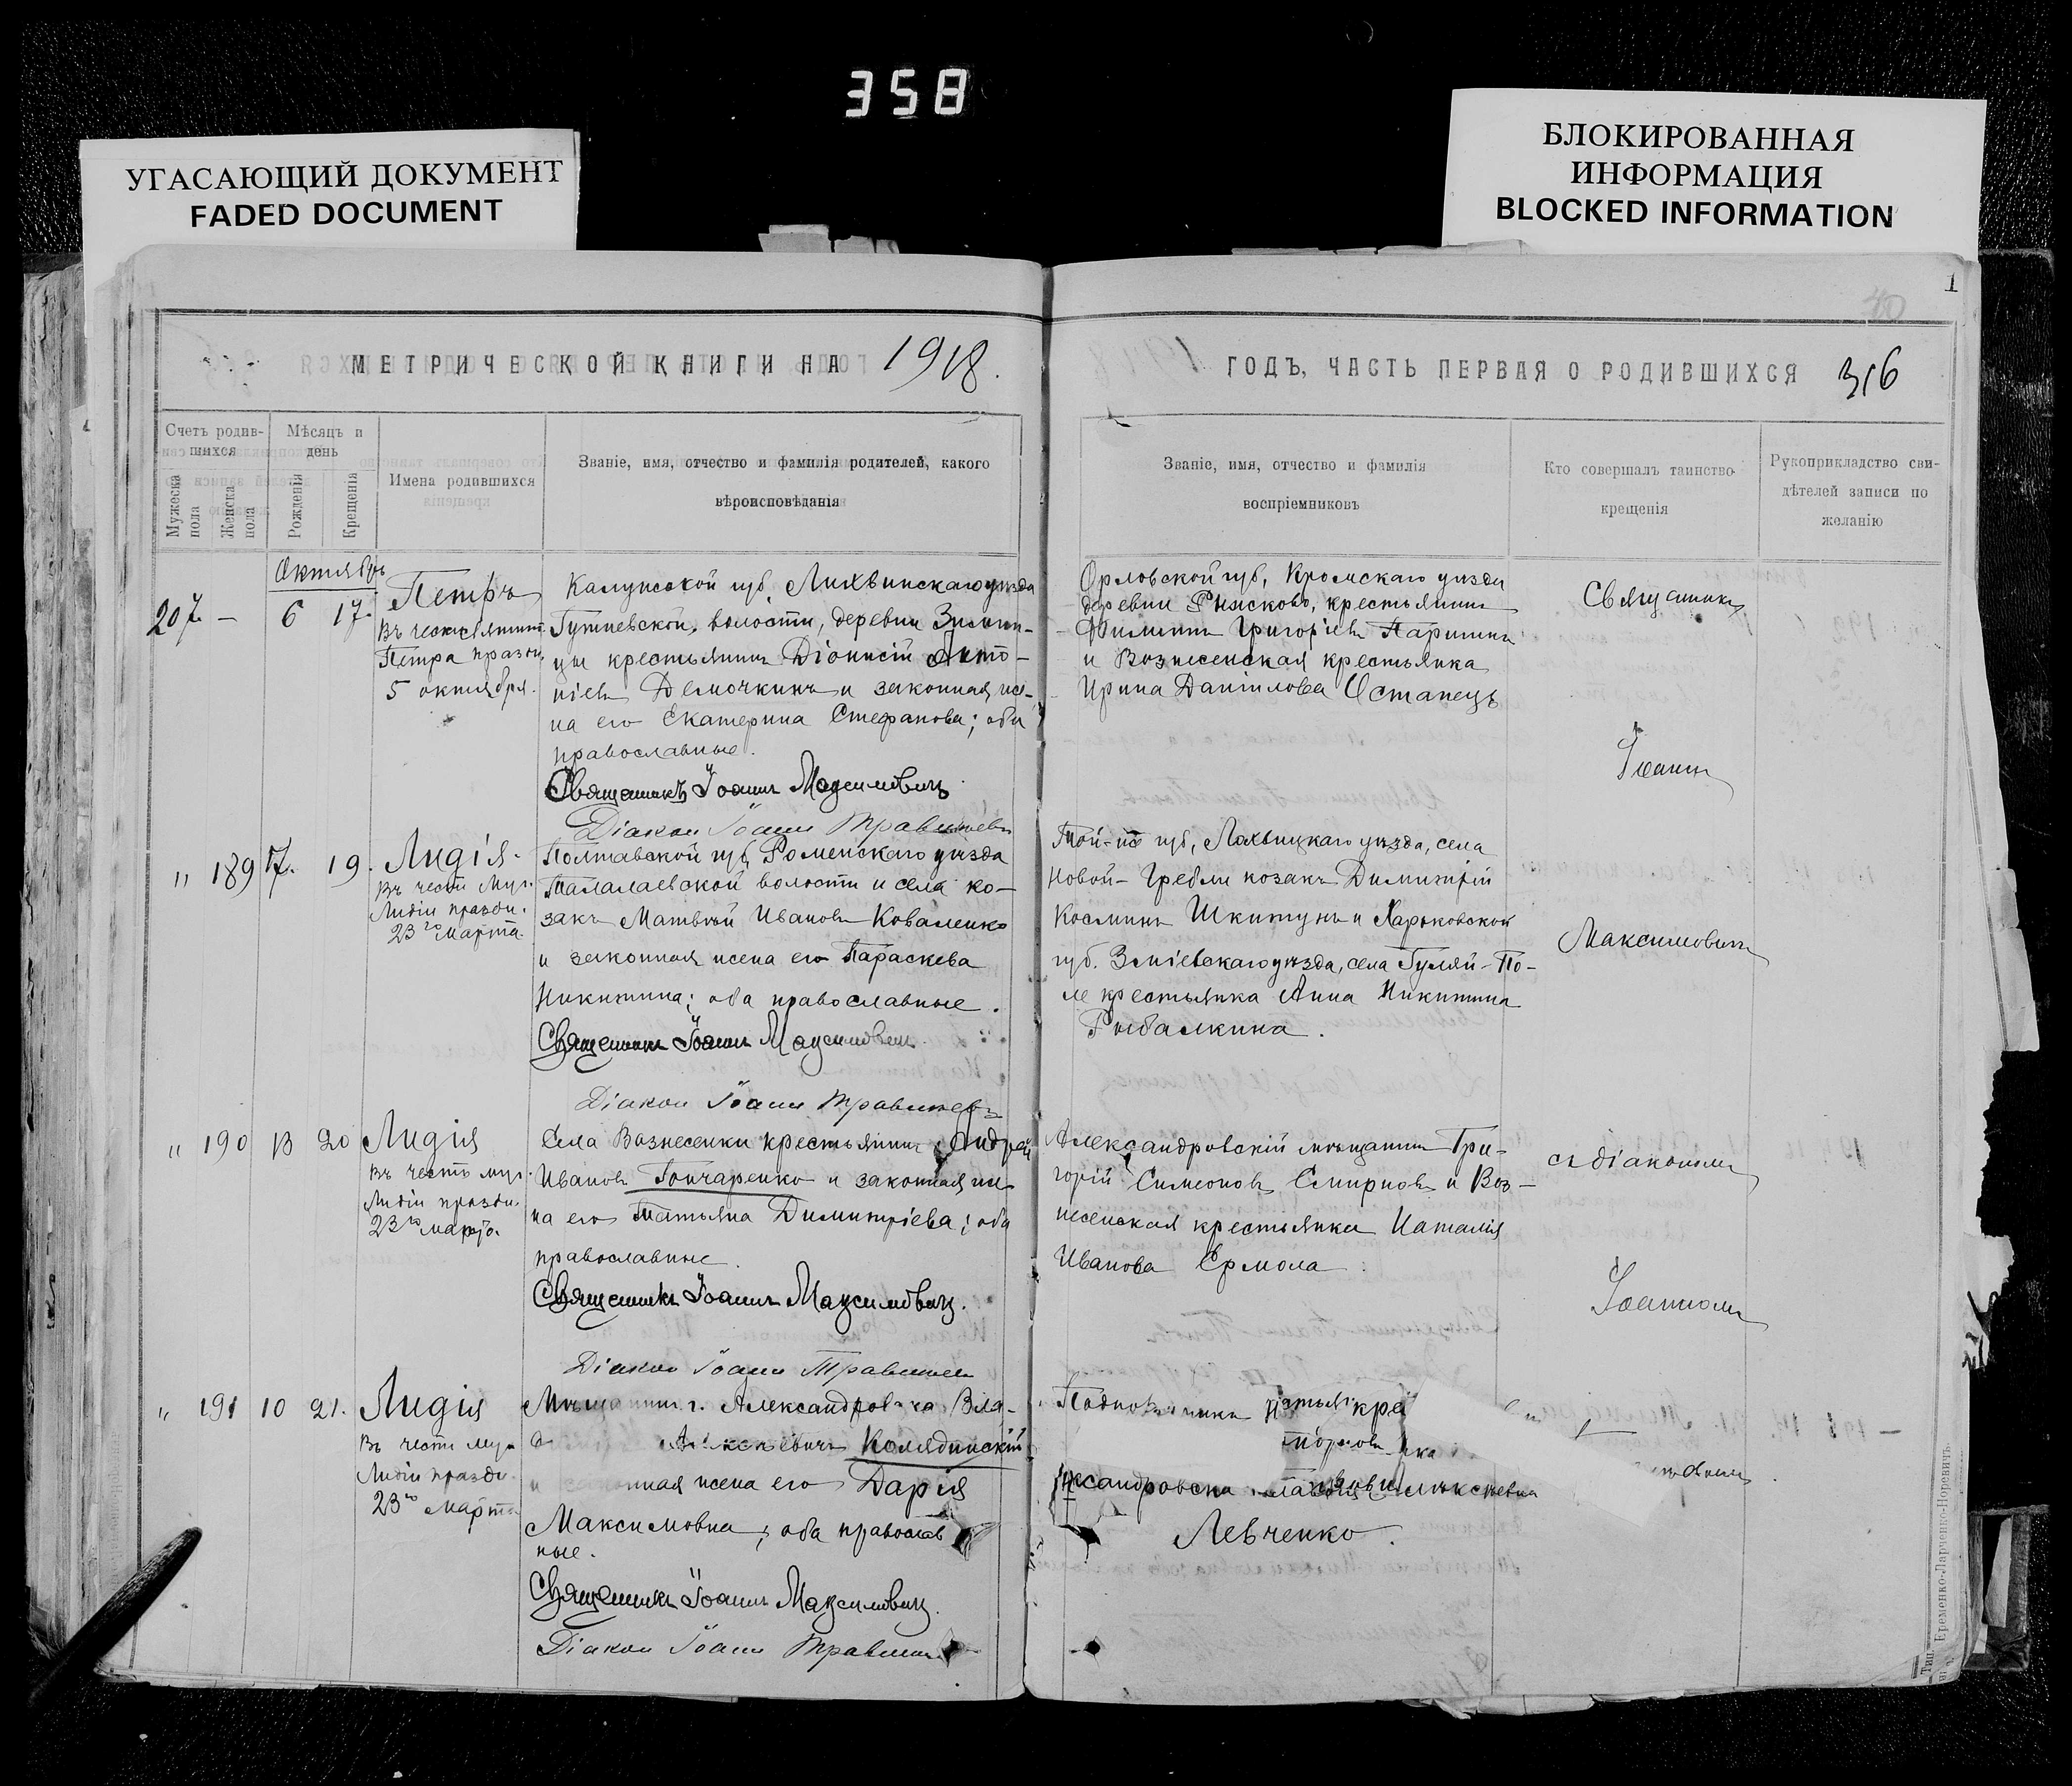 358
УГАСАЮЩИЙ ДОКУМЕНТ
FADED DOCUMENT
БЛОКИРОВАННАЯ
ИНФОРМАЦИЯ
BLOCKED INFORMATION
1
МЕТРИЧЕСКОЙ КНИГИ НА 1918.
Счетъ родив-
шихся
Мужеска
пола
Женска
пола
Мѣсяцъ и
день
Рожденія
Крещенія
Имена родившихся
Званіе, имя, отчество и фамилія родителей, какого
вѣроисповѣданія
Октябрь
207 — 6 17.
Петръ
Петра праздн.
5 октября.
Калужской губ. Лихвинскаго уѣзда
волости, деревни
цы крестьянинъ Діонисій Анто-
ніевъ Демочкинъ и законная же-
на его Екатерина Стефанова; оба
православные.
Священникъ Іоаннъ Максимовичъ
Діаконъ Іоаннъ
" 189 17. 19.
Лидія.
Въ честь муч.
Лидіи праздн.
23го марта.
Полтавской губ. Роменскаго уѣзда
Талалаевской волости и села ко-
закъ Матвѣй Ивановъ Коваленко
и законная жена его Параскева
Никитина; оба православные.
Священникъ Іоаннъ Максимовичъ.
Діаконъ Іоаннъ
" 190 13 20
Лидія
Въ честь муч.
Лидіи праздн.
23го марта.
Села Вознесенки крестьянинъ Андрей
Ивановъ Гончаренко и законная же-
на его Татьяна Димитріева; оба
православные.
Священникъ Іоаннъ Максимовичъ.
Діаконъ Іоаннъ
" 191 10 21.
Лидія
Въ честь муч.
Лидіи праздн.
23го марта
Мѣщанинъ г. Александровска
Колядинскій
жена его Дарія
Максимовна; оба православ
ные.
Священникъ Іоаннъ Максимовичъ.
Діаконъ Іоаннъ
ГОДЪ, ЧАСТЬ ПЕРВАЯ О РОДИВШИХСЯ 316
Званіе, имя, отчество и фамилія
воспріемниковъ
Кто совершалъ таинство
крещенія
Рукоприкладство сви-
дѣтелей записи по
желанію
Орловской губ. Кромскаго уѣзда
деревни крестьянинъ
Филиппъ Григоріевъ
и Вознесенская крестьянка
Ирина Даніилова Остапецъ
Той-же губ., Лохвицкаго уѣзда, села
Новой-Гребли козакъ Димитрій
Косминъ и Харьковской
губ. Зміевскаго уѣзда, села Гуляй-По-
ле крестьянка Анна Никитина
Рыбалкина.
Александровскій мѣщанинъ Гри-
горій Симеоновъ Смирновъ и Воз-
несенская крестьянка Наталія
Иванова Ермола.
Левченко.
Священникъ
Іоаннъ
Максимовичъ
съ діакономъ
Іоанномъ